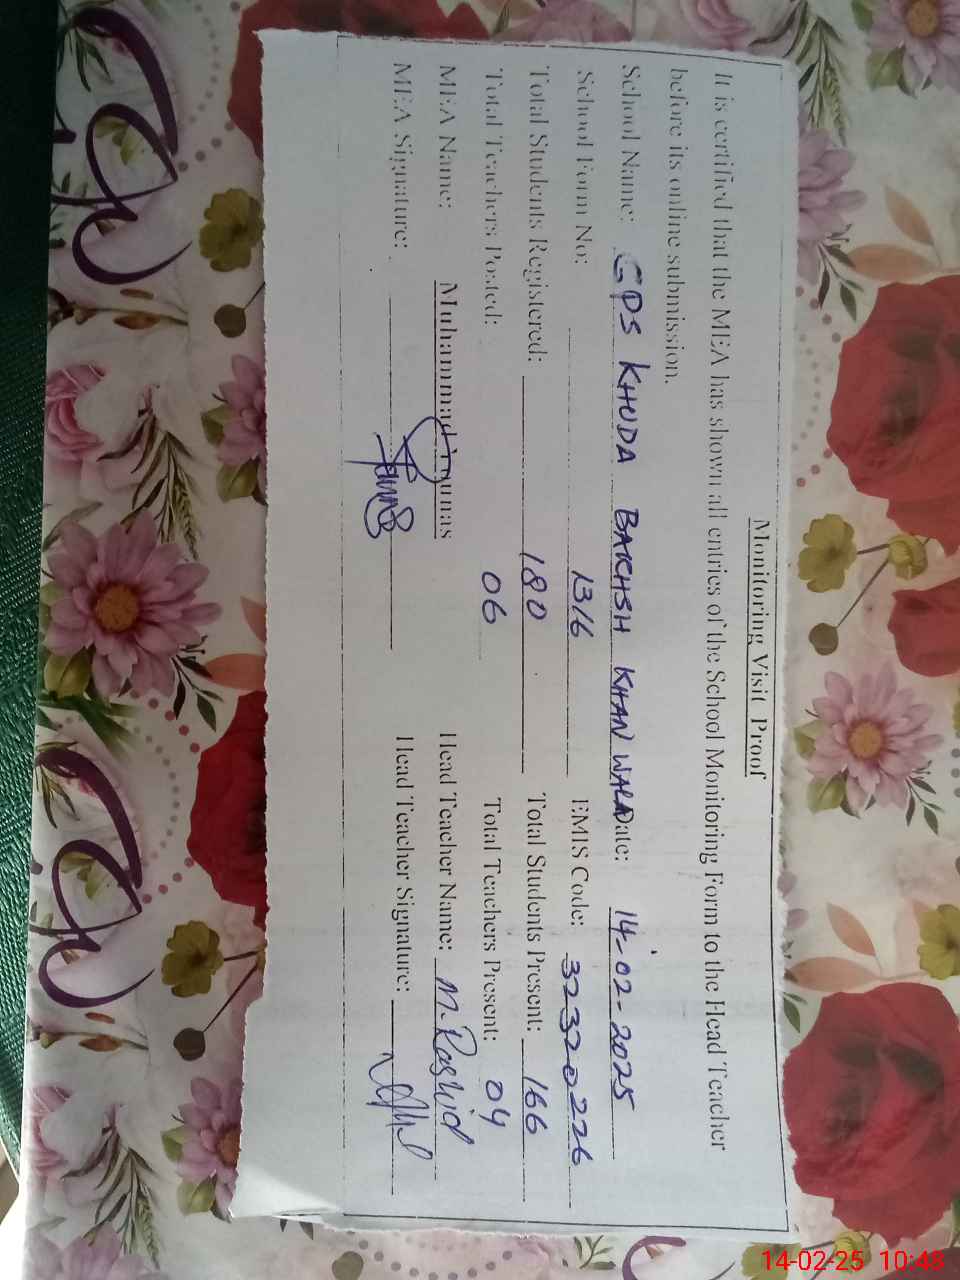 Monitoring Visit Proof
It is certified that the MEA has shown all entries of the School Monitoring Form to the Head Teacher
before its online submission.
School Name: GPS KHUDA BAKHSH KHAN WALA Date: 14-02-2025
School Form No: 1316 EMIS Code: 32320226
Total Students Registered: 180 Total Students Present: 166
Total Teachers Posted: 06 Total Teachers Present: 04
MEA Name: Muhammad Younas Head Teacher Name: M. Rashid
MEA Signature: Head Teacher Signature:
14-02-25 10:48